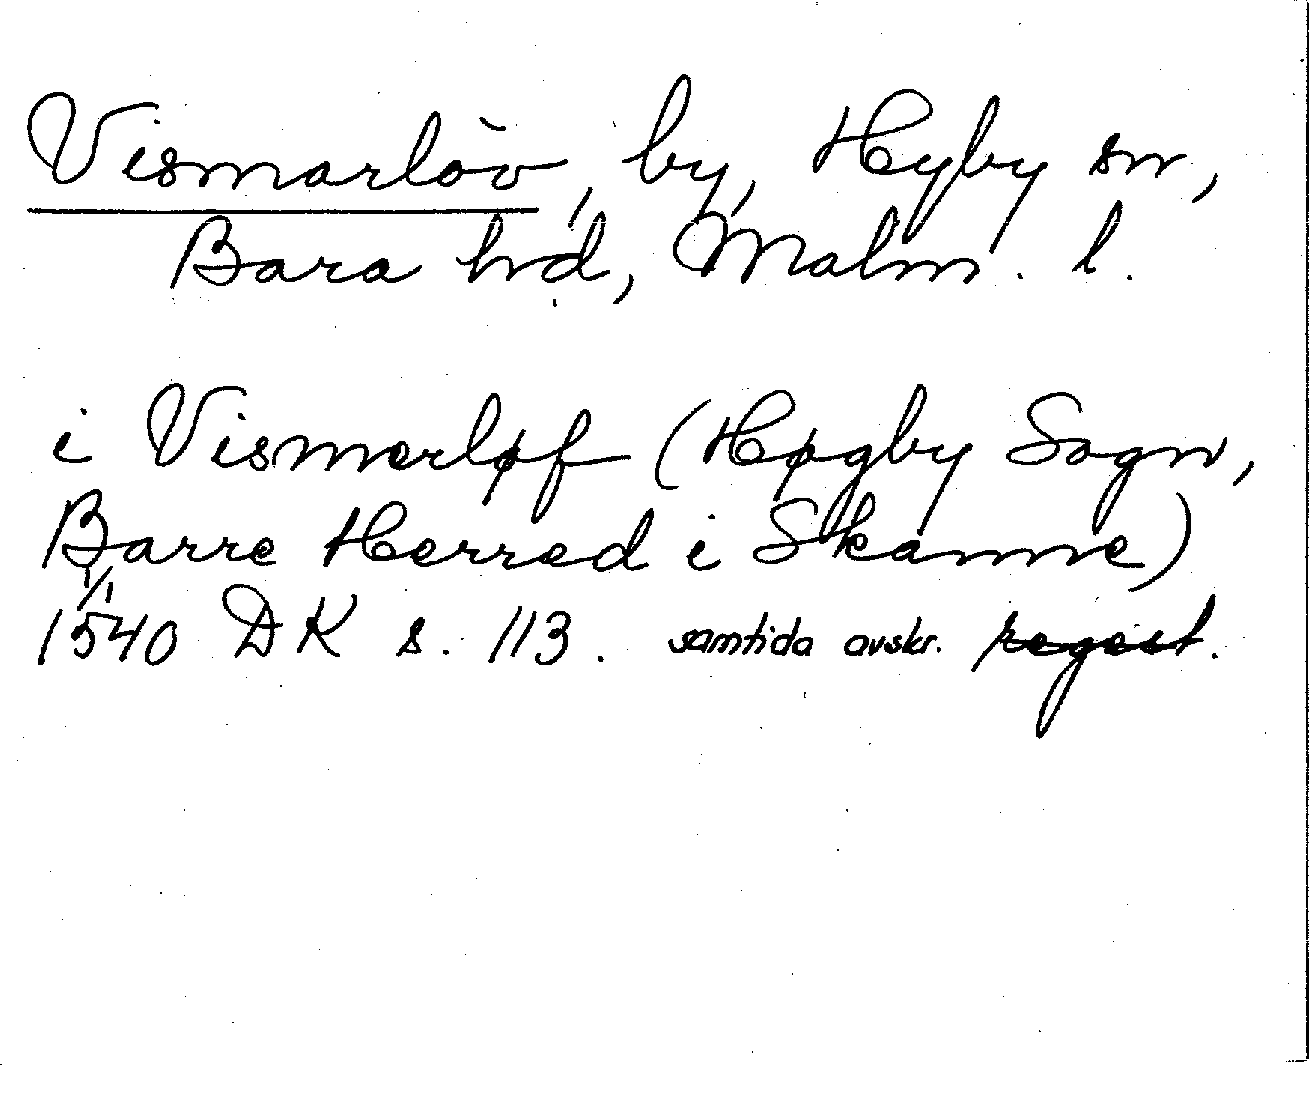 Vismarlöv, by, Hyby sn,
Bara hd, Malm. l.
i Vismerløf (Høgby Sogn,
Barre Herred i Skanne)
1/1
1540 DK s. 113. samtida avskr. regest.